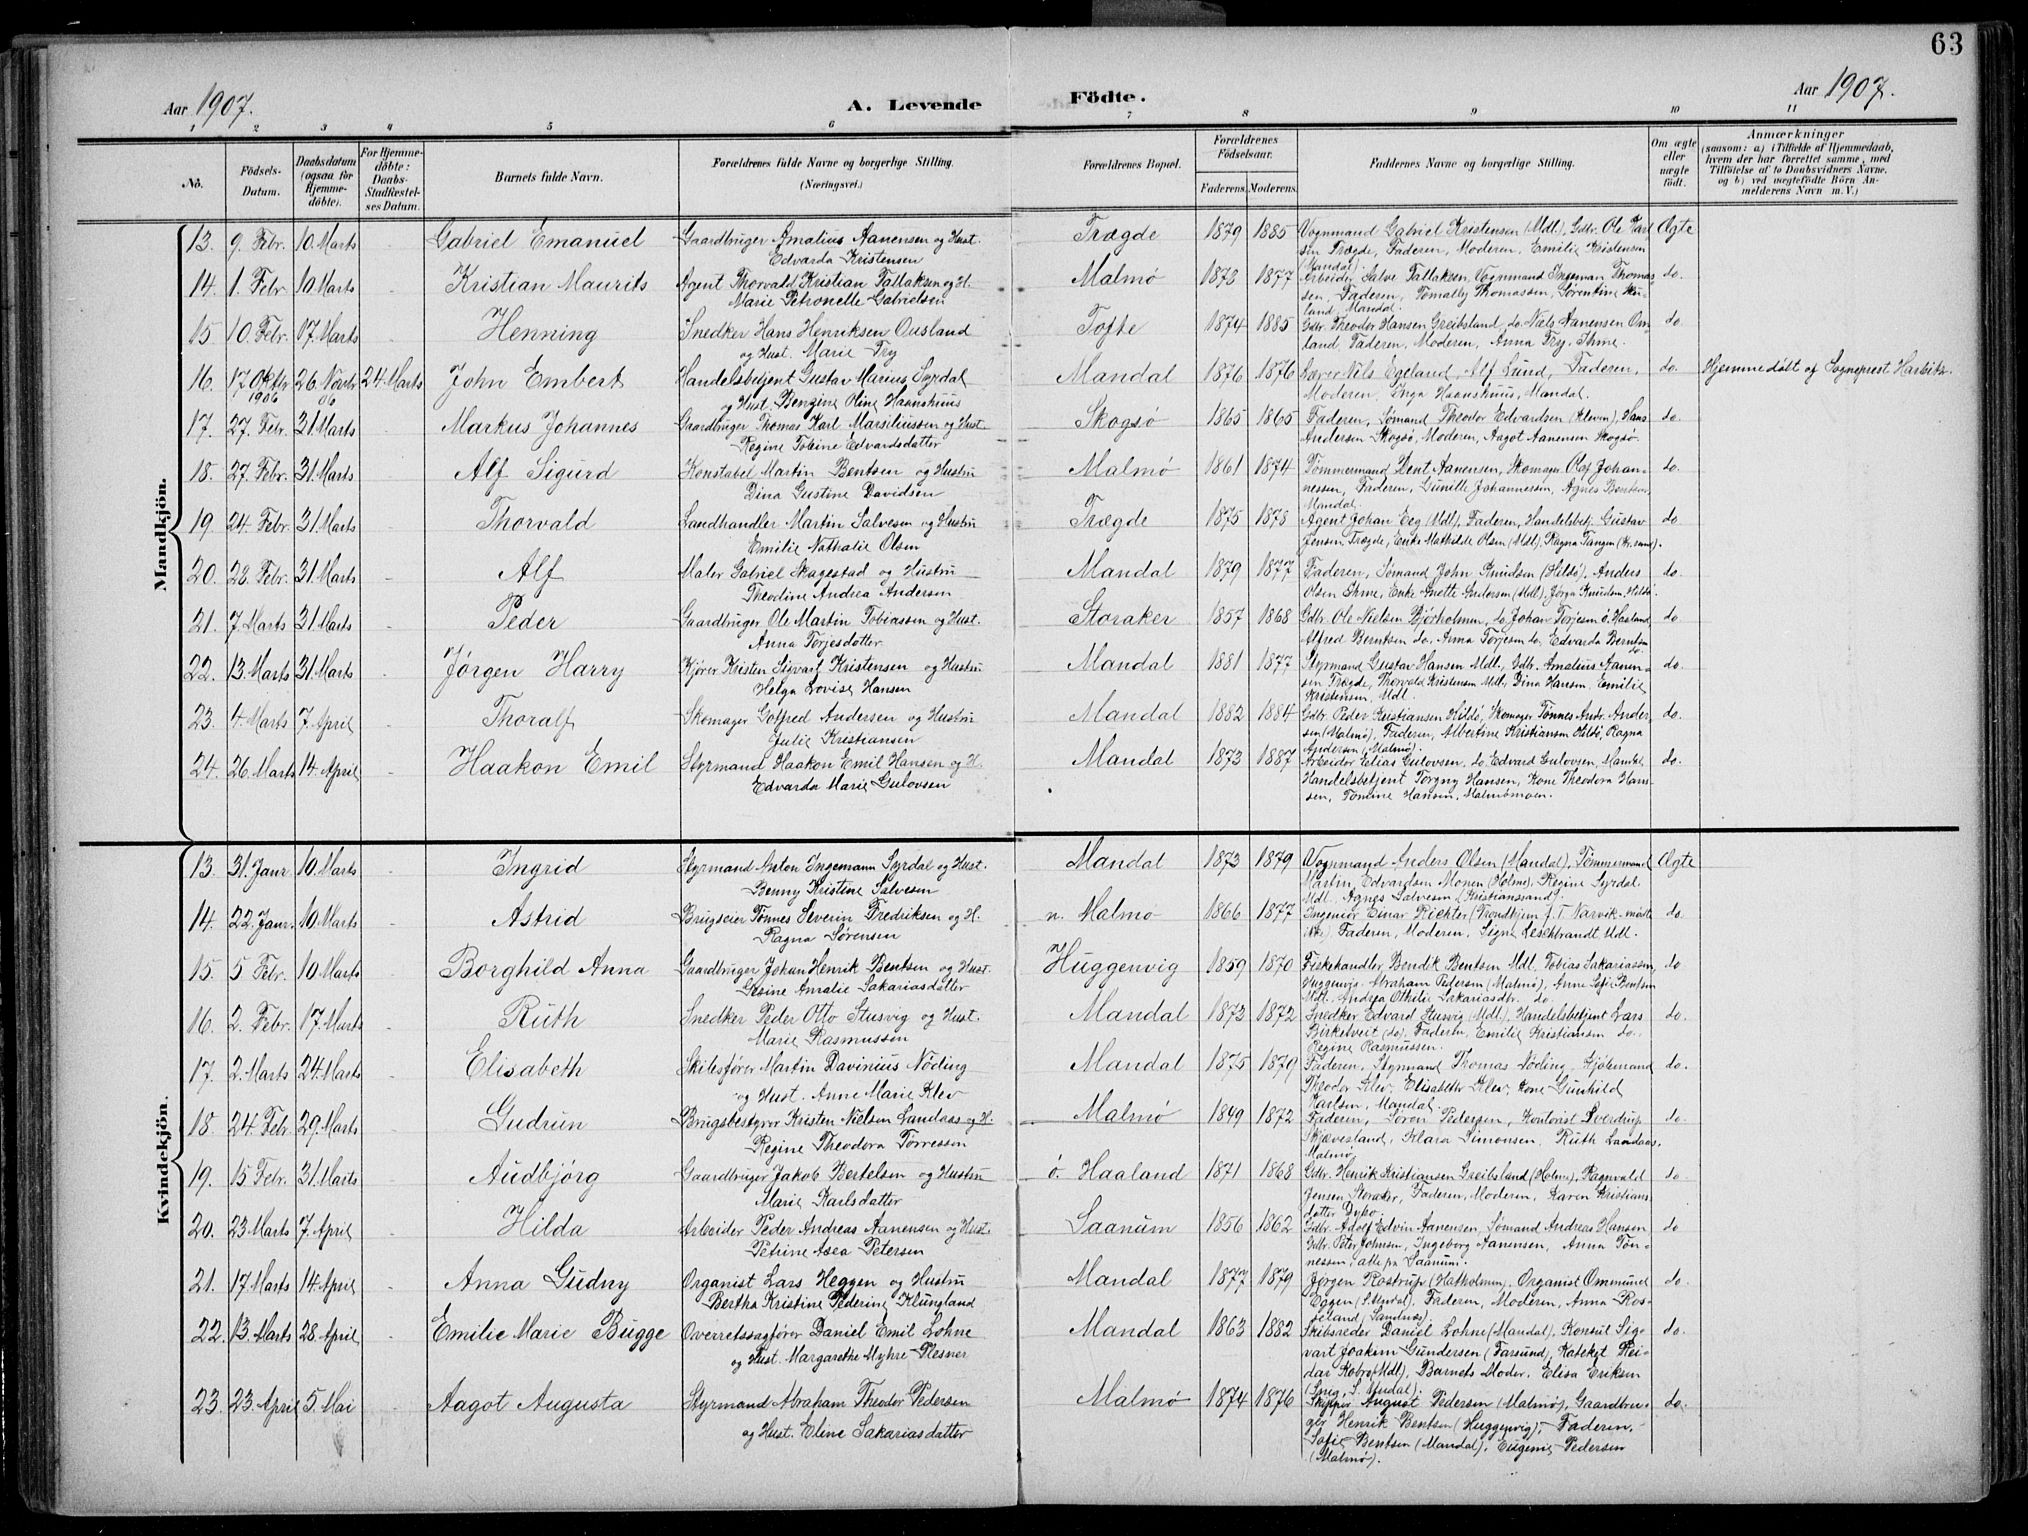 63
Aar 1907.
A. Levende
Födte.
Aar 1907.
1 2 3 4 5 6 7 8 9 10 11
No.
Födsels-Datum.
Daabsdatum (ogsaa for Hjemme-döbte).
For Hjemme-döbte: Daabs-Stadfæstel-ses Datum.
Barnets fulde Navn.
Forældrenes fulde Navne og borgerlige Stilling. (Næringsvei.)
Forældrenes Bopæl.
Forældrenes Födselsaar.
Faderens. Moderens.
Faddernes Navne og borgerlige Stilling.
Om ægte eller uægte födt.
Anmærkninger
(saasom: a) i Tilfælde af Hjemmedaab, hvem der har forrettet samme, med Tilföielse af to Daabsvidners Navne. og b) ved uægtefödte Börn An-melderens Navn m. V.)
Mandkjön.
13. 9. Febr. 10. Marts - Gabriel Emanuel Gaardbruger Amatius Aanensen og Hust. Trægde 1879 1885 Vognmand Gabriel Kristensen (Mdl), Gdbr. Ole Karl Ægte
Edvarda Kristensen sin Trægde, Faderen, Moderen, Emilie Kristensen
(Mandal).
14. 1. Febr 10. Marts - Kristian Maurits Agent Thorvald Kristian Tallaksen og H. Malmø 1873 1877 Arbeider Salve Tallaksen, Vognmand Ingeman Thomas do.
Marie Petronelle Gabrielsen sen, Faderen, Tomally Thomassen, Sørentine
land Mandal.
15 10. Febr. 17. Marts - Henning Snedker Hans Henriksen Ousland Tofte 1874 1885 Gdbr. Theodor Hansen Greibsland, do. Niels Aanensen Om do.
og Hust. Marie Try land, Faderen, Moderen, Anna Try, Ihme.
16. 17 Oktbr. 26 Novbr 24. Marts John Embert Handelsbetjent Gustav Marius Syrdal Mandal 1876 1876 Lærer Nils Egeland, Alf Lund, Faderen, do. Hjemmedøbt af Sogneprest Harbitz.
1906 06 og Hust. Benzine Oline Haanshuus Moderen, Inga Haanshuus, Mandal.
17. 27. Febr. 31 Marts - Markus Johannes Gaardbruger Thomas Karl Marsiliussen og Hust Skogsø 1865 1865 Faderen, Sømand Theodor Edvardsen (Kleven) Hans do.
Regine Tobine Edvardsdatter Andersen Skogsø, Moderen, Aagot Aanensen Skogsø.
18. 27. Febr. 31 Marts - Alf Sigurd Konstabel Martin Bentsen og Hustru Malmø 1861 1874 Tømmermand Bent Aanensen, Skomagr Olaf Johan- do.
Dina Gustine Davidsen nessen, Faderen, Gunille Johannessen, Agnes Bentsen,
Mandal.
19. 24 Febr. 31. Marts - Thorvald Landhandler Martin Salvesen og Hustru Trægde 1875 1878 Agent Johan Eeg (Mdl), Faderen, Handelsbetj. Gustav do
Emilie Nathalie Olsen Jensen Trægde, Enke Mathilde Olsen (Mdl), Ragna Tangen (Kr.sand).
20. 28. Febr. 31 Marts - Alf Maler Gabriel Skagestad og Hustru Mandal 1879 1877 Faderen, Sømand John Knudsen (Hildø), Anders do.
Theodine Andrea Andersen Olsen Ihme, Enke Anette Andersen (Mdl), Jørga Knudsen, Hildø.
21. 7. Marts 31 Marts - Peder Gaardbruger Ole Martin Tobiassen og Hust. Storaker 1857 1868 Gdbr. Ole Nielsen Bjørholmen, do. Johan Torjesen ö. Haaland do.
Anna Torjesdatter Alfred Berntsen do. Anna Torjesen do. Edvarda Berntsen
do
22. 13. Marts 31. Marts - Jørgen Harry Kjører Kristen Sigvart Kristensen og Hustru Mandal 1881 1877 Styrmand Gustav Hansen Mdl., Gdb. Amatius Aanen- do.
Helga Lovise Hansen sen Trægde, Thorvald Kristensen Mdl., Dina Hansen, Emilie
Kristensen Mdl.
23. 4. Marts 7. April - Thoralf Skomager Golfred Andersen og Hustru Mandal 1882 1884 Gdbr. Peder Kristiansen Hildø, Skomager Tønnes Andr. Ander do.
Julie Kristiansen sen (Malmø), Faderen, Albertine Kristiansen Hildø, Ragna
Andersen (Malmø).
24. 26. Marts 14. April - Haakon Emil Styrmand Haakon Emil Hansen og H. Mandal 1873 1887 Arbeider Elias Gulovsen, do. Edvard Gulovsen, Mandal. do.
Edvarda Marie Gulovsen Handelsbetjent Torgny Hansen, Kone Theodora Han-
sen, Tomine Hansen, Malmømoen.
Kvindekjön.
13. 31. Janr 10. Marts - Ingrid Styrmand Anton Ingemann Syrdal og Hust. Mandal 1873 1879 Vognmand Anders Olsen (Mandal), Tømmermand Ægte
Benny Kristine Salvesen Martin Edvardsen Monen (Holme), Regine Syrdal
Mdl. Agnes Salvesen (Kristiansand).
14. 22. Janr. 10. Marts - Astrid Brugseier Tønnes Severin Fredriksen og H. n. Malmø 1866 1877 Ingeniør Einar Richter (Trondhjem f. T. Narvik- mødte do.
Ragna Sørensen ikke) Faderen, Moderen, Signe Leschbrandt Mdl.
15. 5 Febr. 10. Marts - Borghild Anna Gaardbruger Johan Henrik Bentsen og Hust. Huggenvig 1859 1870 Fiskehandler Bendik Bentsen Mdl. Tobias Sakariassen, do
Gesine Amalie Sakariasdatter Huggenvig. Abraham Pedersen (Malmø), Anne Sofie Bentsen
Mdl., Andrea Othilie Sakariasdtr. do.
16. 2. Febr. 17. Marts - Ruth Snedker Peder Otto Stusvig og Hust. Mandal 1873 1872 Snedker Edvard Stusvig (Mdl), Handelsbetjent Lars do
Marie Rasmussen Birketveit (do). Faderen, Emilie Kristiansen do.
Regine Rasmussen.
17. 2. Marts 24. Marts - Elisabeth Skibsfører Martin Davinius Nöding Mandal 1875 1879 Faderen, Styrmand Thomas Nöding, Kjøbmand do.
og Hust. Anne Marie Klev Theodor Klev, Elisabeth Klev, Kone Gunhild
Karlsen, Mandal.
18. 24 Febr 29. Marts - Gudrun Brugsbestyrer Kristen Nielsen Landaas og H. Malmø 1849 1872 Faderen, Søren Pedersen, Kontorist Sverdrup do.
Regine Theodora Torressen Skjævesland, Klara Simonsen, Ruth Landaas,
Malmø
19. 15 Febr. 31. Marts - Audbjørg Gaardbruger Jakob Bertelsen og Hustru ö. Haaland 1871 1868 Gdbr. Henrik Kristiansen Greibsland (Holme), Ragnvald do
Marie Karlsdatter Jensen Storaker, Faderen, Moderen, Karen Kristians
datter Dybo.
20. 23 Marts 7. April - Hilda Arbeider Peder Andreas Aanensen og Hust. Saanum 1856 1862 Gdbr. Adolf Edvin Aanensen, Sømand Andreas Hansen do
Petrine Asea Petersen Gdbr. Peter Johnsen, Ingeborg Aanensen, Anna Tøn-
nessen, alle på Saanum.
21. 17. Marts 14. April - Anna Gudny Organist Lars Heggen og Hustru Mandal 1877 1879 Jørgen Rostrup (Hatholmen), Organist Ommund do.
Bertha Kristine Pederine Klungland Eggen (S. Undal), Faderen, Moderen, Anna Ros-
seland, (Sandnæs).
22. 13. Marts 28. April - Emilie Marie Bugge Overretssagfører Daniel Emil Lohne Mandal 1863 1882 Skibsreder Daniel Lohne (Mandal), Konsul Sig- do.
og Hust. Margarethe Myhre Plesner vart Joakim Gundersen (Farsund), Kateket Rei-
dar Kobro (Mdl), Barnets Moder, Elisa Eriksen
(Spng, S. Undal).
23. 23. April 5. Mai - Aagot Augusta Styrmand Abraham Theodor Pedersen Malmø 1874 1876 Skipper August Pedersen (Malmø), Gaardbru- do.
og Hust. Eline Sakariasdatter ger Henrik Bentsen (Huggenvig), Faderen,
Sofie Bentsen (Mandal), Eugenie Pedersen
(Malmø).